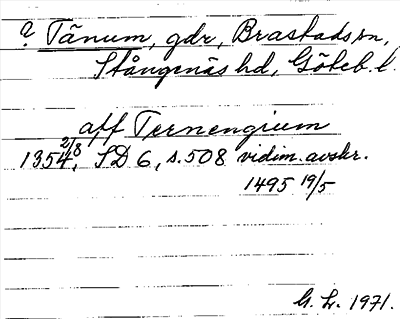 ? Tånum, gdr, Brastads sn,
Stångenäs hd, Göteb. l.
aff Ternengium
1354 2/8, SD 6, s. 508 vidim. avskr.
1495 19/5
G. L. 1971.